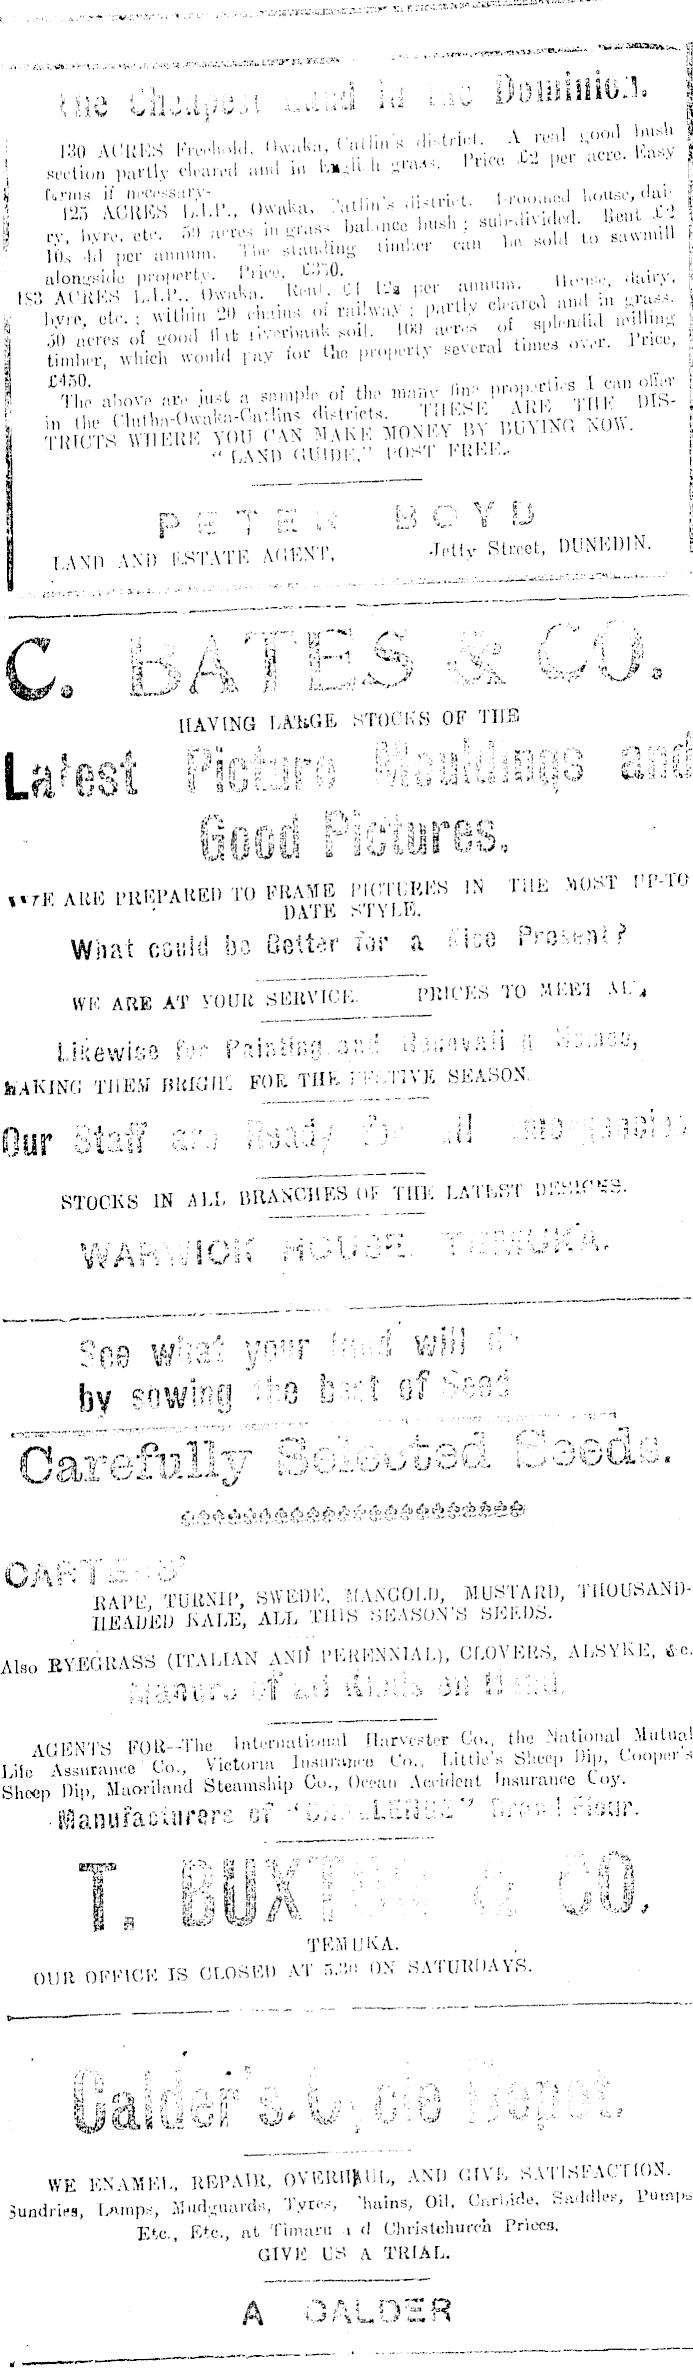 The Cheapest Land in the Dominion.
130 ACRES Freehold, Owaka, Catlin's district. A real good bush
section partly cleared and in English grass. Price £2 per acre. Easy
terms if necessary-
125 ACRES L.I.P., Owaka, Catlin's district. 4-roomed house, dai-
ry, byre, etc. 50 acres in grass balance bush; sub-divided. Rent £2
10s 4d per annum. The standing timber can be sold to sawmill
alongside property. Price, £350.
183 ACRES L.I.P.. Owaka. Rent, £4 12s per annum. House, dairy,
byre, etc.; within 20 chains of railway; partly cleared and in grass.
50 acres of good flat riverbank soil. 100 acres of splendid milling
timber, which would pay for the property several times over. Price,
£450.
The above are just a sample of the many fine properties I can offer
in the Clutha-Owaka-Catlins districts. THESE ARE THE DIS-
TRICTS WHERE YOU CAN MAKE MONEY BY BUYING NOW.
"LAND GUIDE," POST FREE.
PETER BOYD
LAND AND ESTATE AGENT, Jetty Street, DUNEDIN.
C. BATES & CO.
HAVING LARGE STOCKS OF THE
Latest Picture Mouldings and
Good Pictures,
WE ARE PREPARED TO FRAME PICTURES IN THE MOST UP-TO
DATE STYLE.
What could be Better for a Nice Present?
WE ARE AT YOUR SERVICE. PRICES TO MEET ALL
Likewise for Painting and Renovating Homes,
MAKING THEM BRIGHT FOR THE FESTIVE SEASON.
Our Staff are Ready for all Emergencies
STOCKS IN ALL BRANCHES OF THE LATEST DESIGNS.
WARWICK HOUSE, TEMUKA.
See what your land will do
by sowing the best of Seed
Carefully Selected Seeds.
CARTERS'
RAPE, TURNIP, SWEDE, MANGOLD, MUSTARD, THOUSAND-
HEADED KALE, ALL THIS SEASON'S SEEDS.
Also RYEGRASS (ITALIAN AND PERENNIAL), CLOVERS, ALSYKE, &c.
Manure of all Kinds on Hand.
AGENTS FOR--The International Harvester Co., the National Mutual
Life Assurance Co., Victoria Insurance Co., Little's Sheep Dip, Cooper's
Sheep Dip, Maoriland Steamship Co., Ocean Accident Insurance Coy.
Manufacturers of "CHALLENGE" Brand Flour.
T. BUXTON & CO,
TEMUKA.
OUR OFFICE IS CLOSED AT 5.30 ON SATURDAYS.
Calder's Cycle Depot.
WE ENAMEL, REPAIR, OVERHAUL, AND GIVE SATISFACTION.
Sundries, Lamps, Mudguards, Tyres, Chains, Oil, Carbide, Saddles, Pumps
Etc., Etc., at Timaru and Christchurch Prices.
GIVE US A TRIAL.
A CALDER